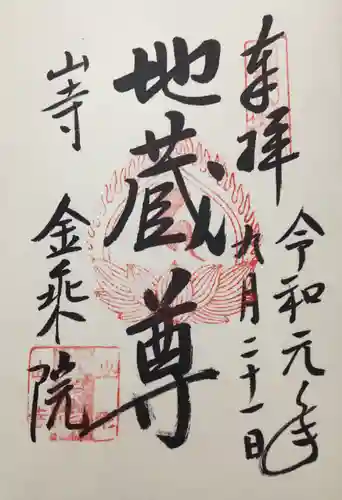 奉拝
令和元年
九月二十一日
地蔵尊
山寺
金乘院